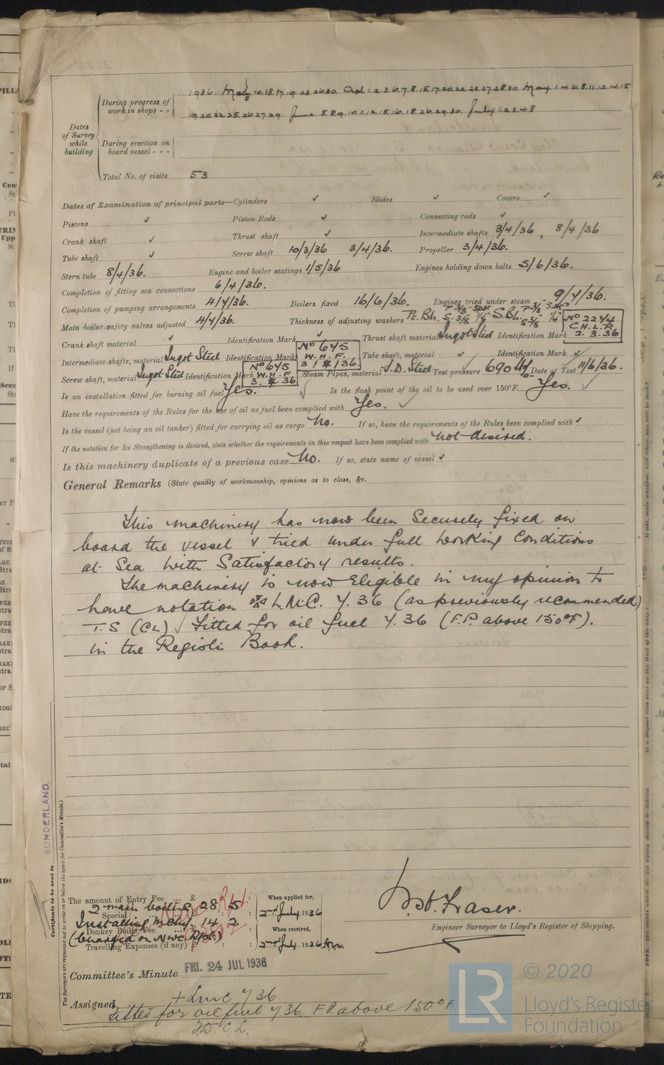 Dates of Survey while building
During progress of work in shops - -
1936
19.20.22.25.26.27.29 June 5.8.9.10.12.15.16.18.26.29.30 July 1.2.4.8
During erection on board vessel - - -
Total No. of visits 53
Dates of Examination of principal parts—Cylinders ✓ Slides ✓ Covers ✓
Pistons ✓ Piston Rods ✓ Connecting rods ✓
Crank shaft ✓ Thrust shaft ✓ Intermediate shafts 3/4/36, 8/4/36
Tube shaft ✓ Screw shaft 10/3/36 3/4/36. Propeller 3/4/36.
Stern tube 8/4/36. Engine and boiler seatings 1/5/36 Engines holding down bolts 5/6/36.
Completion of fitting sea connections 6/4/36.
Completion of pumping arrangements 4/7/36. Boilers fixed 16/6/36. Engines tried under steam 9/7/36.
Main boiler safety valves adjusted 4/7/36. Thickness of adjusting washers
Crank shaft material ✓ Identification Mark ✓ Thrust shaft material Ingot Steel Identification Mark No 2244 C.H.L.P. 2.3.36
Intermediate shafts, material Ingot Steel Identification Marks No 645 W.H.F. Tube shaft, material ✓ Identification Mark ✓
Screw shaft, material Ingot Steel Identification Mark No 645 W.H.F. Steam Pipes, material S.D. Steel Test pressure 690 Date of Test 11/6/36.
Is an installation fitted for burning oil fuel Yes. Is the flash point of the oil to be used over 150°F. Yes.
Have the requirements of the Rules for the use of oil as fuel been complied with Yes.
Is the vessel (not being an oil tanker) fitted for carrying oil as cargo No. If so, have the requirements of the Rules been complied with ✓
If the notation for Ice Strengthening is desired, state whether the requirements in this respect have been complied with not desired.
Is this machinery duplicate of a previous case No. If so, state name of vessel ✓
General Remarks (State quality of workmanship, opinions as to class, &c.
This machinery has now been securely fixed on
board the vessel & tried under full working conditions
at Sea with Satisfactory results.
The machinery is now Eligible in my opinion to
have notation L.M.C. 7.36 (as previously recommended)
T.S (CL) Fitted for oil fuel 7.36 (F.P. above 150°F).
in the Register Book.
SUNDERLAND.
Certificate to be sent to
(The Surveyors are requested not to write on or below the space for Committee's Minute.)
The amount of Entry Fee .. £
2 main boilers 28 : 5
Special
Installing Mchy 14 . 2
Donkey Boiler Fee
Travelling Expenses (if any) £
When applied for,
2nd July 1936
When received,
2nd July 1936
Engineer Surveyor to Lloyd's Register of Shipping.
Committee's Minute FRI. 24 JUL 1936
Assigned + LMC 7.36
Fitted for oil fuel 7.36 F.P. above 150°F
LR
© 2020
Lloyd's Register
Foundation